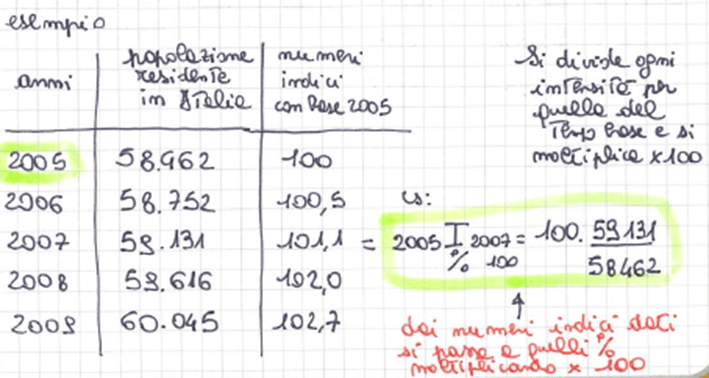 esempio
anni
popolazione
residente
in Italia
numeri
indici
con base 2005
Si divide ogni
intensità per
quella del
tempo base e si
moltiplica x100
2005 58.462 100
2006 58.752 100,5
es:
2007 59.131 101,1 = 2005 I 2007 = 100. 59131
% 100 58462
2008 59.616 102,0
2009 60.045 102,7
dai numeri indici dati
si passa a quelli %
moltiplicando x 100